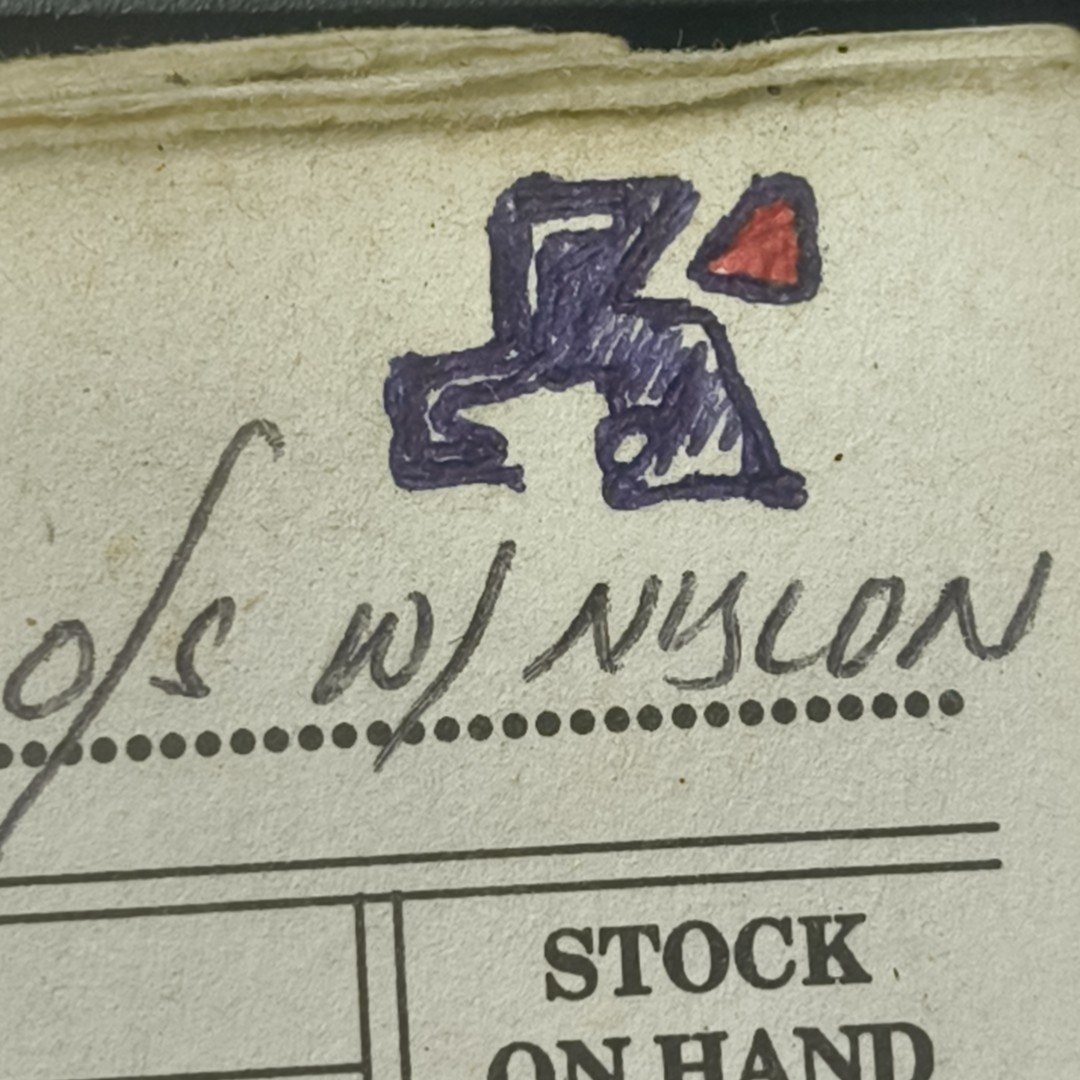 O/S W/ NYLON
STOCK
ON HAND